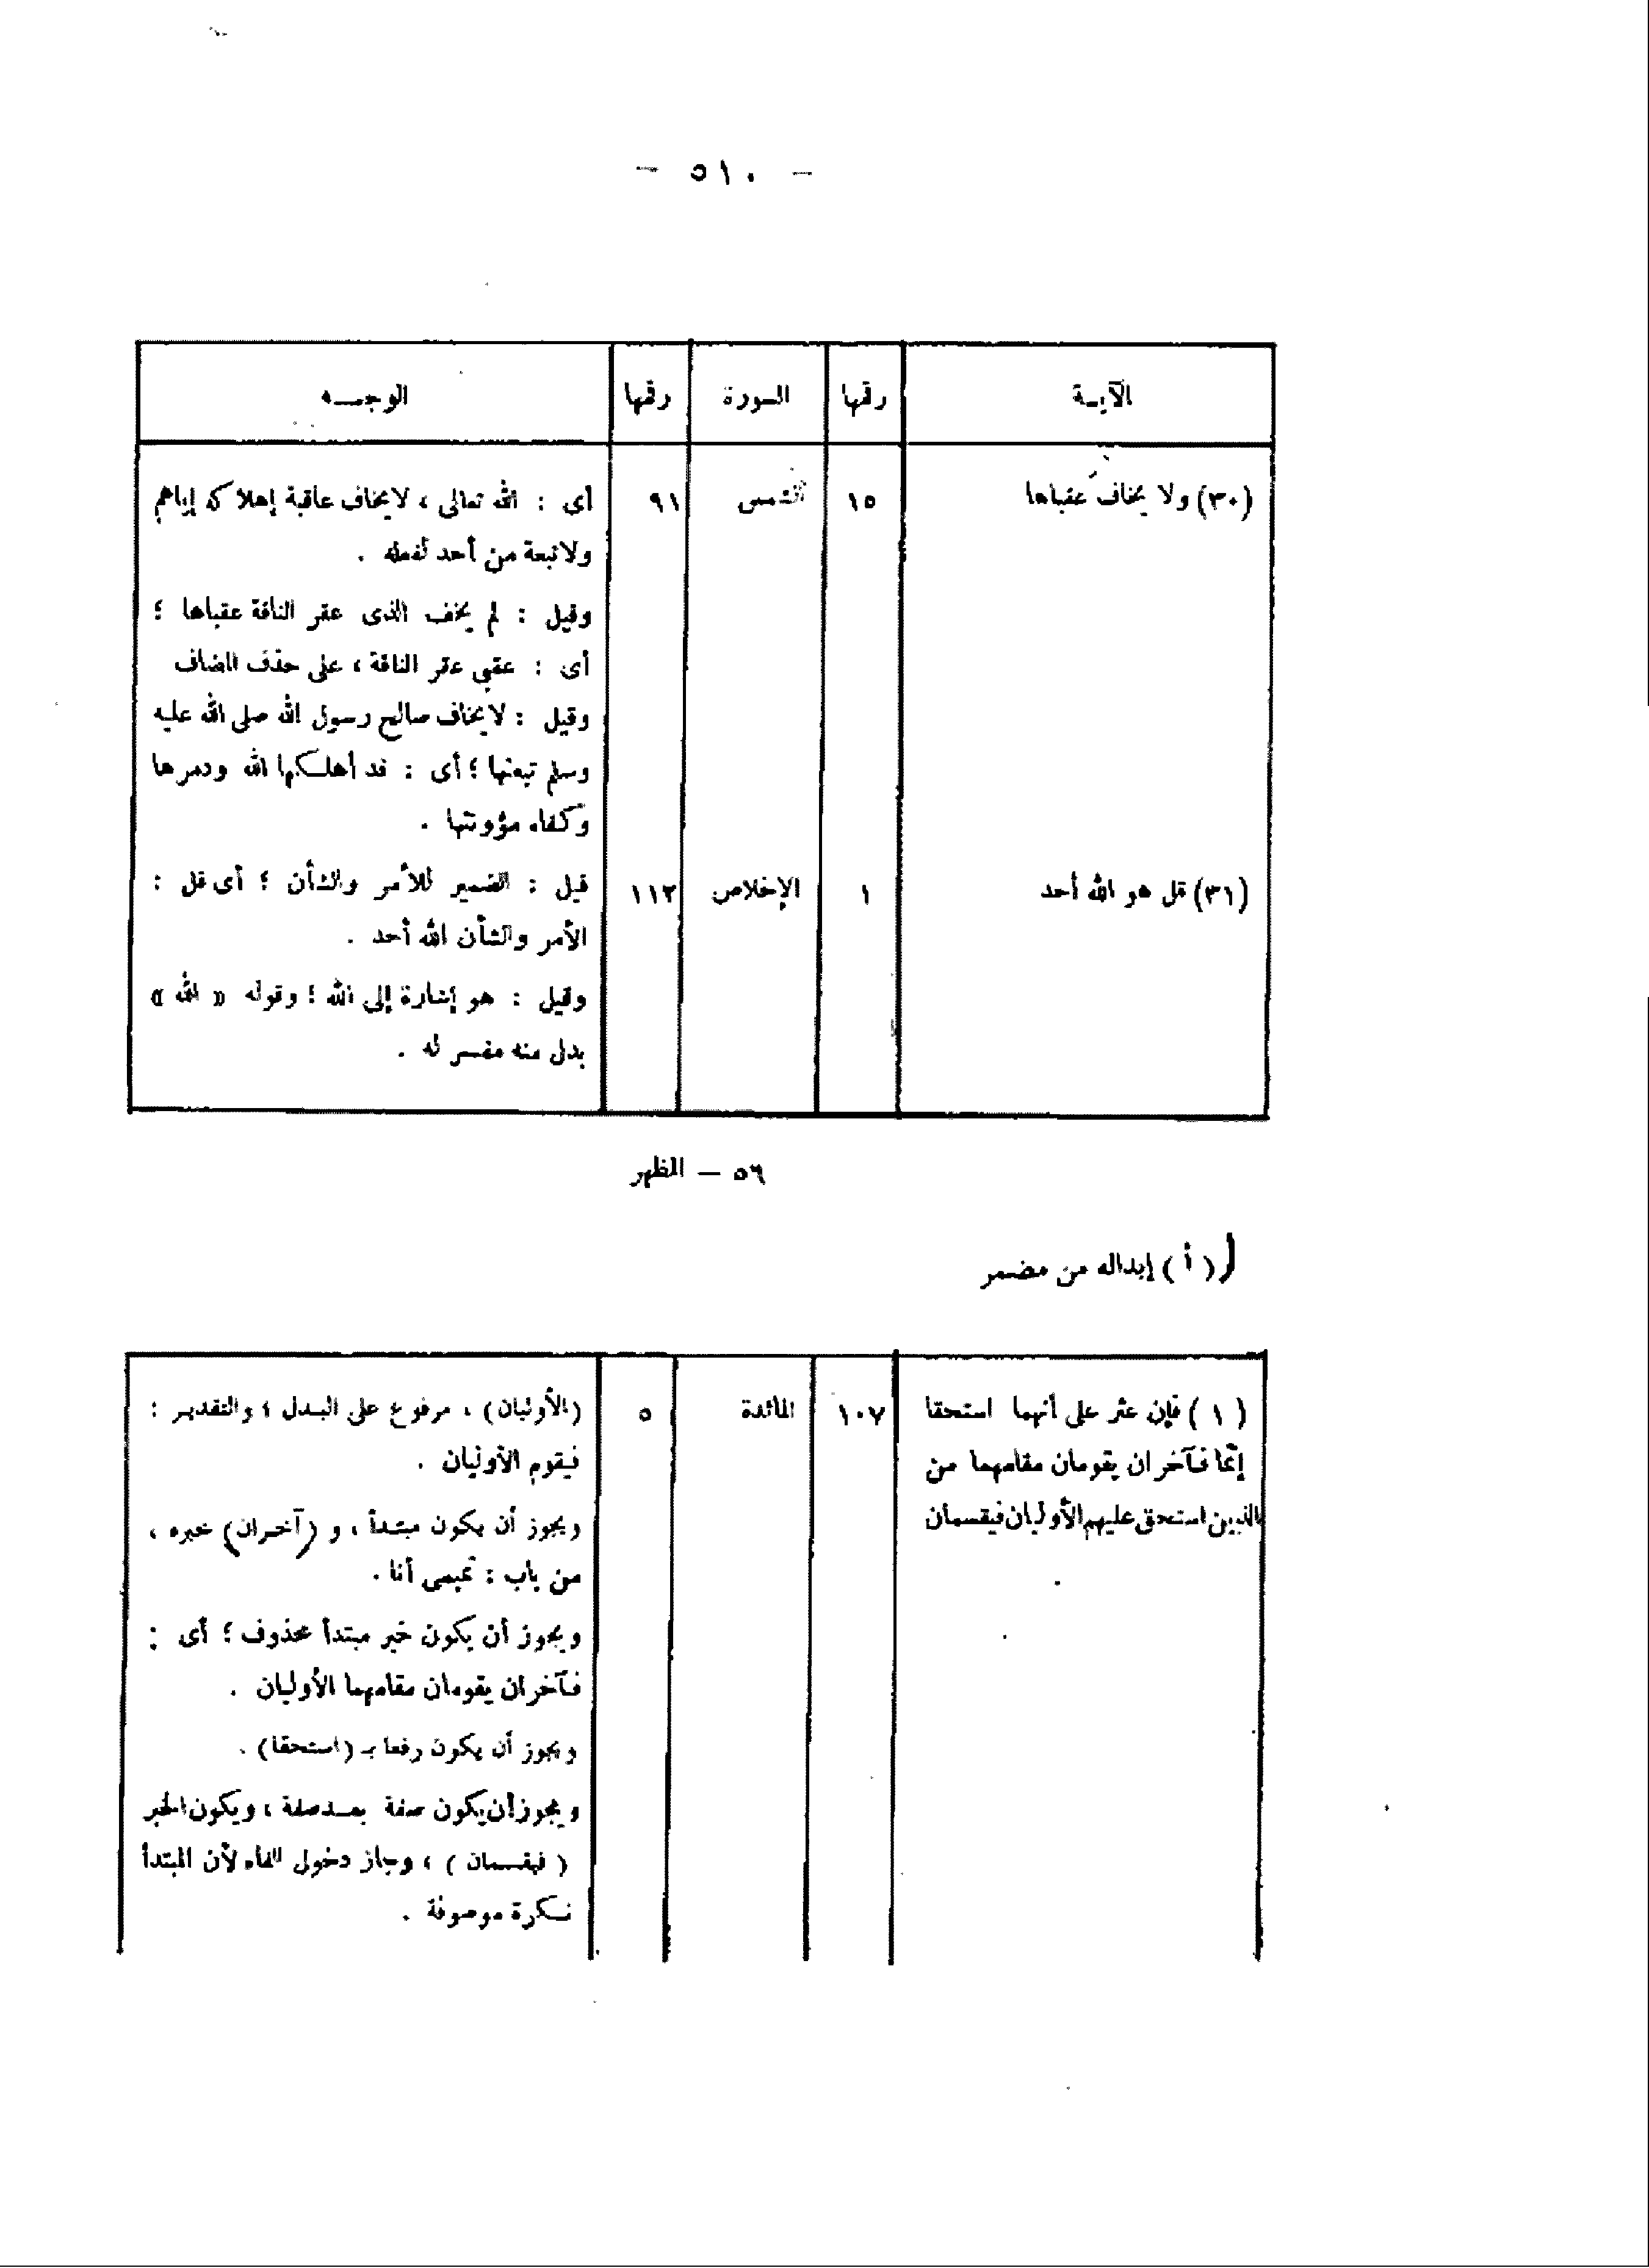 — ٥١٠ —
الآيـة رقمها السورة رقمها الوجـــه
(٣٠) ولا يخاف عقباها ١٥ الشمس ٩١ أى : الله تعالى ، لا يخاف عاقبة إهلاكه إياهم
ولا تبعة من أحد لفعله .
وقيل : لم يخف الذى عقر الناقة عقباها ؛
أى : عقبى عقر الناقة ، على حذف المضاف
وقيل : لا يخاف صالح رسول الله صلى الله عليه
وسلم تبعتها ؛ أى : قد أهلكها الله ودمرها
وكفاه مؤونتها .
(٣١) قل هو الله أحد ١ الإخلاص ١١٢ قيل : الضمير للأمر والشأن ؛ أى قل :
الأمر والشأن الله أحد .
وقيل : هو إشارة إلى الله ؛ وقوله « الله »
بدل منه مفسر له .
٥٦ — المظهر
( أ ) إبداله من مضمر
( ١ ) فإن عثر على أنهما استحقا ١٠٧ المائدة ٥ (الأوليان) ، مرفوع على البدل ؛ والتقدير :
إثما فآخران يقومان مقامهما من فيقوم الأوليان .
الذين استحق عليهم الأوليان فيقسمان ويجوز أن يكون مبتدأ ، و (آخران) خبره ،
من باب : تميمى أنا .
ويجوز أن يكون خبر مبتدأ محذوف ؛ أى :
فآخران يقومان مقامهما الأوليان .
ويجوز أن يكون رفعا بـ (استحقا) .
ويجوز أن يكون صفة بعد صفة ، ويكون الخبر
( فيقسمان ) ، وجاز دخول الفاء لأن المبتدأ
نكرة موصوفة .